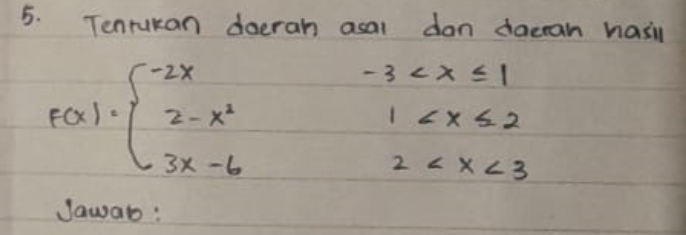 5. Tentukan daerah asal dan daerah hasil
-2x -3 < x ≤ 1
F(x) = { 2 - x² 1 < x ≤ 2
3x - 6 2 < x < 3
Jawab :